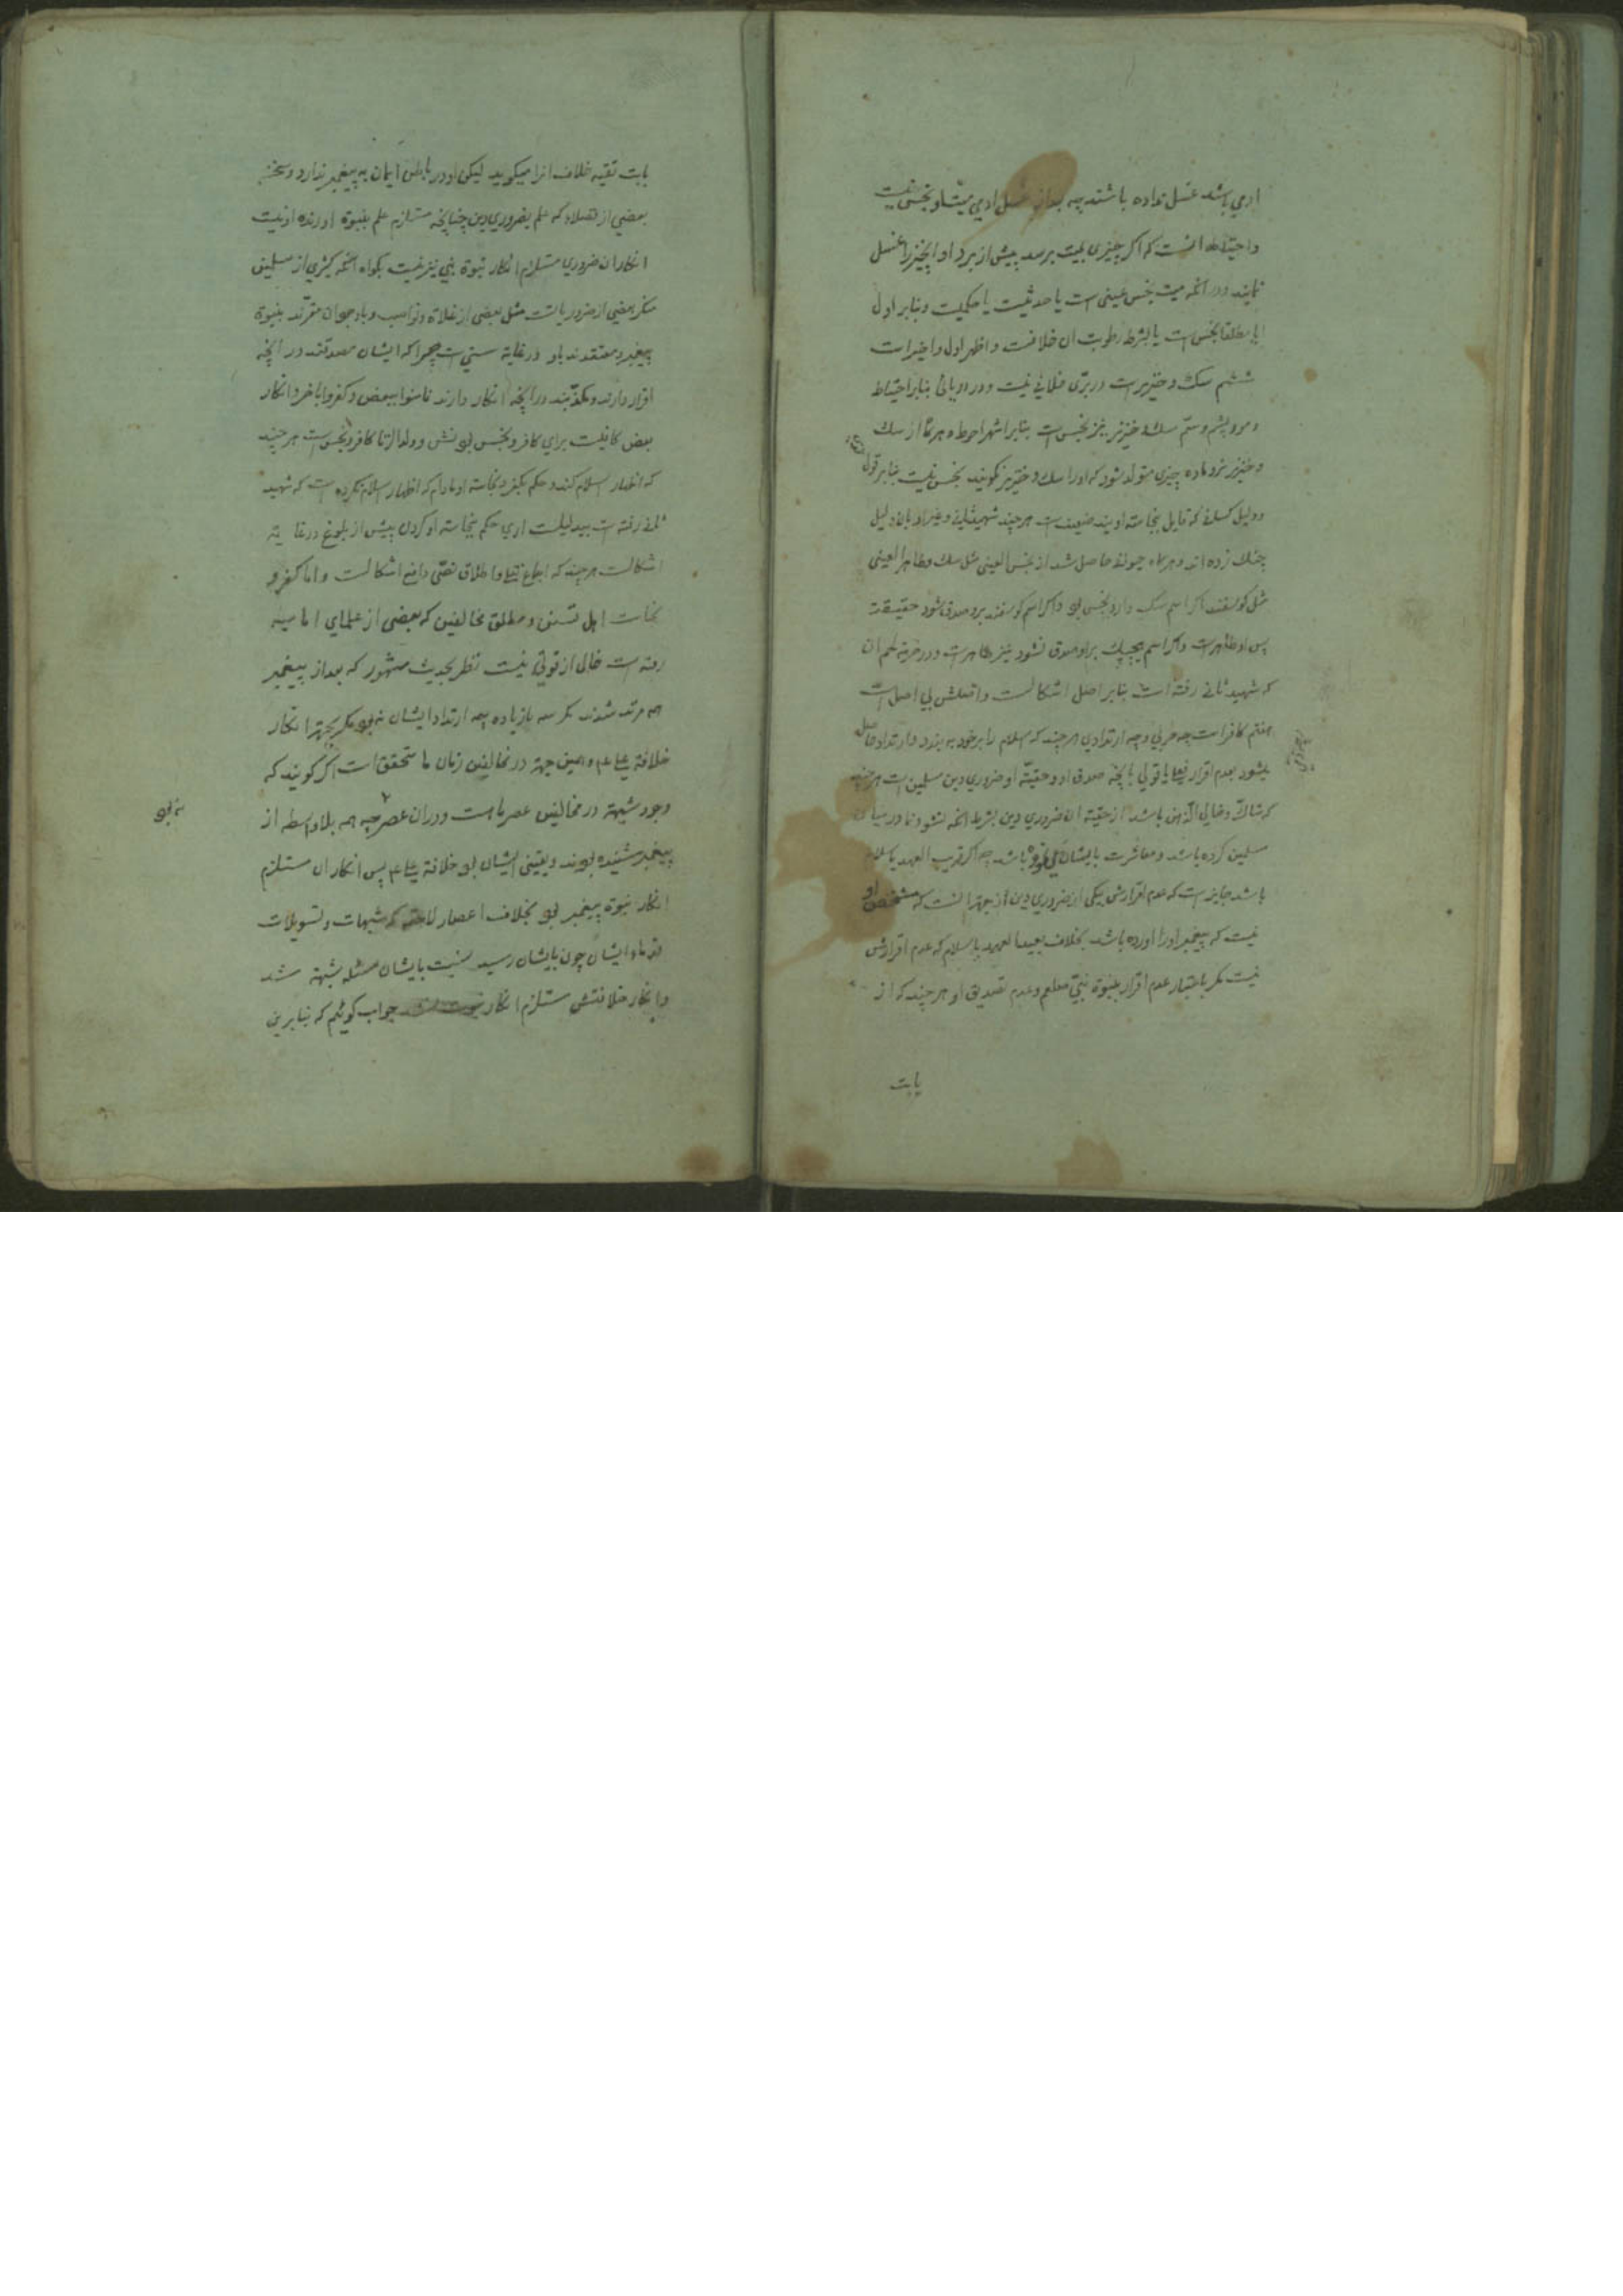 ادمي باشد غسل نداده باشند چه بعد از غسل ادمي ميتة و نجس نيست
و احتياط انست كه اكر چيزي بميت برسد پيش از برد او انچيز را غسل
نمايند و در انكه ميت نجس عيني است يا حدثيست يا حكميست و بنابر اول
ايا مطلقا نجس است يا بشرط رطوبت ان خلافست و اظهر اول و اخير است
ششم سك و خنزير است در برّي خلافي نيست و در دريائي بنابر احتياط
و مو و پشم و سمّ سك و خنزير نيز نجس است بنابر اشهر احوط و هركاه از سك
و خنزير نر و ماده چيزي متولد شود كه او را سك و خنزير نكويند نجس نيست بنابر قول
و دليل كساني كه قايل بنجاسة اويند ضعيف است هر چند شهيد ثاني و غير او بان دليل
چنك زده اند و هركاه حيواني حاصل شد از نجس العيني مثل سك و طاهر العيني
مثل كوسفند اكر اسم سك دارد نجس بود و اكر اسم كوسفند برو صدق شود حقيقت
پس او طاهر است و اكر اسم هيچيك بر او صدق نشود نيز طاهر است و در حرمة لحم ان
كه شهيد ثاني رفته است بنابر اصل اشكالست و اتصلش بي اصل است
هفتم كافر است چه حربي و چه ارتدادي هر چند كه اسلام را بر خود به بندد و ارتداد حاصل
ميشود بعدم اقرار فعلي يا قولي بانچه صدق او و حقيّة او ضروري دين مسلمين است هر چند
كه شاكّ و خالي الذهن باشد از حقيّة ان ضروري دين بشرط انكه نشو و نما در ميان
مسلمين كرده باشد و معاشرت با ايشان باشد چه اكر قريب العهد باسلام
باشد جايز است كه عدم اقرارش بيكي از ضروري دين از جهة انست كه مشخص او
نيست كه پيغمبر او را اورده باشد بخلاف بعيد العهد باسلام كه عدم اقرارش
نيست مكر باعتبار عدم اقرار بنبوة نبيّ صلعم و عدم تصديق او هر چند كه از
بابت
بابت تقيه خلاف انرا ميكويد ليكن او در باطن ايمان به پيغمبر ندارد و سخن
بعضي از فضلاء كه علم بضروري دين چنانچه مستلزم علم بنبوة اورنده او نيست
انكار ان ضروري مستلزم انكار نبوة نبي نيز نيست بكواه انكه كثيري از مسلمين
منكر بعضي از ضروريا است مثل بعضي از غلاة و نواصب و با وجود ان مقرّند بنبوة
پيغمبر و معتقدند باو در غاية سستي است چرا كه ايشان مصدقند در انچه
اقرار دارند و مكذّبند در انچه انكار دارند نامنوا ببعض و كفروا باخر و انكار
بعض كافيست براي كافر و نجس بودنش و ولد الزنا كافر و نجس است هر چند
كه اظهار اسلام كند و حكم بكفر و نجاسة او مادام كه اظهار اسلام نكرده است كه شهيد
ثاني رفته است بيدليلست اري حكم بنجاسة او كردن پيش از بلوغ در غاية
اشكالست هر چند كه اجماع نقلي و اطلاق نصّي دافع اشكالست و اما كفر و
نجاست اهل تسنن و مطلق مخالفين كه بعضي از علماي اماميه
رفته است خالي از قوتي نيست نظر بحديث مشهور كه بعد از پيغمبر
همه مرتد شدند مكر سه يا زياده چه ارتداد ايشان نه بود مكر بجهة انكار
خلافة علي ع م و همين جهة در مخالفين زمان ما متحقق است اكر كويند كه
وجود شبهة در مخالفين عصر ما است و در ان عصر چه همه بلا واسطه از
نه بود
پيغمبر شنيده بودند و يقيني ايشان بود خلافة علي ع م پس انكار ان مستلزم
انكار نبوة پيغمبر بود بخلاف اعصار لاحقه كه شبهات و تسويلات
قدماء ايشان چون بايشان رسيد بايشان مسئله شبهة شد
و انكار خلافتش مستلزم انكار نبوت نشد جواب كوئيم كه بنابرين